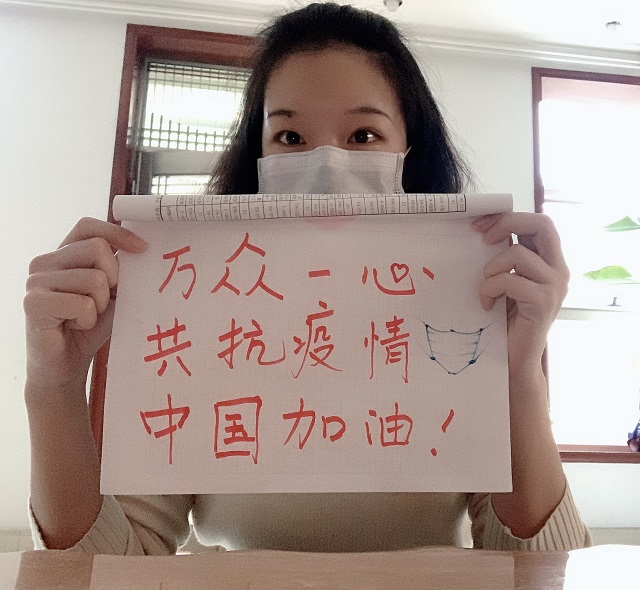 万众一心
共抗疫情
中国加油!